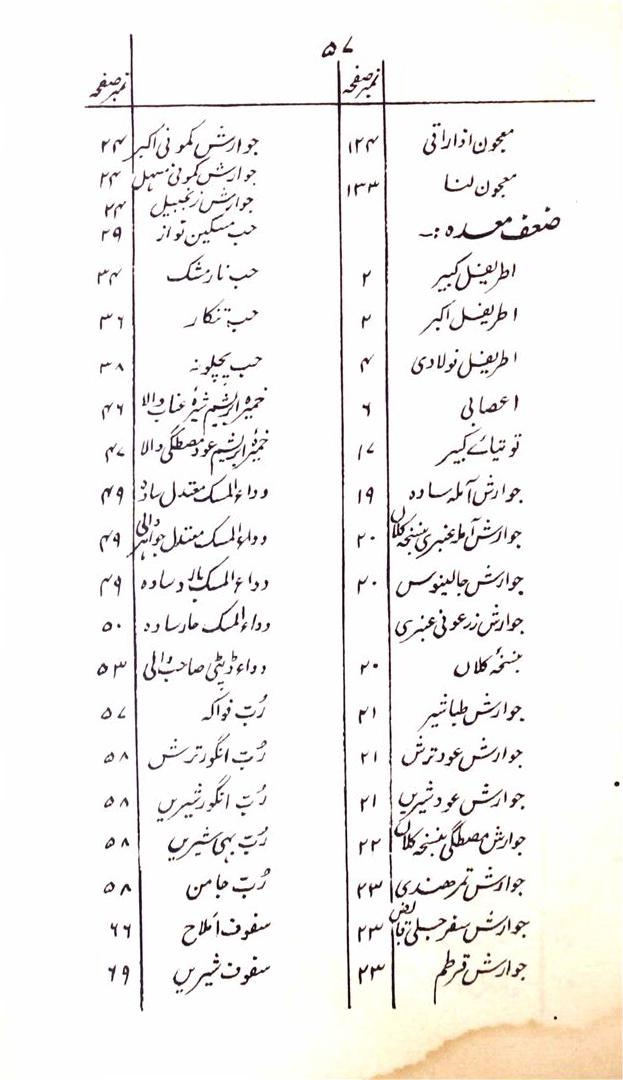 ۵۷
نمبر صفحہ
معجون اذاراقی ۱۲۴
معجون لنا ۱۳۳
ضعف معدہ :-
اطریفل کبیر ۲
اطریفل اکبر ۲
اطریفل فولادی ۴
اعصابی ۶
توتیائے کبیر ۱۷
جوارش آملہ سادہ ۱۹
جوارش آملہ عنبری بنسخہ کلاں ۲۰
جوارش جالینوس ۲۰
جوارش زرعونی عنبری
بنسخۂ کلاں ۲۰
جوارش طباشیر ۲۱
جوارش عود ترش ۲۱
جوارش عود شیریں ۲۱
جوارش مصطگی بنسخہ کلاں ۲۲
جوارش تمر ھندی ۲۳
جوارش سفرجلی قابض ۲۳
جوارش قرطم ۲۳
نمبر صفحہ
جوارش کمونی اکبر ۲۴
جوارش کمونی مسہل ۲۴
جوارش زنجبیل ۲۴
حب مسکین نواز ۲۹
حب نارمشک ۳۴
حب تنکار ۳۶
حب پچلونہ ۳۸
خمیرۂ ابریشم شیرۂ عناب والا ۴۶
خمیرۂ ابریشم عود مصطگی والا ۴۷
دواء المسک معتدل سادہ ۴۹
دواء المسک معتدل جواہر والی ۴۹
دواء المسک بارد سادہ ۴۹
دواء المسک حار سادہ ۵۰
دواء ڈپٹی صاحب والی ۵۳
رُبّ فواکہ ۵۷
رُبّ انگور ترش ۵۸
رُبّ انگور شیریں ۵۸
رُبّ بہی شیریں ۵۸
رُبّ جامن ۵۸
سفوف املاح ۶۶
سفوف شیریں ۶۹